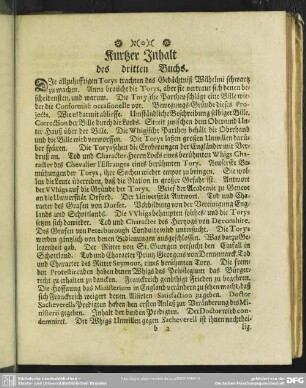 Kurtzer Inhalt
des dritten Buchs.
Die allzuhefftigen Torys trachten das Gedächtniß Wilhelmi schwartz
zu machen. Anna braucht die Torys, aber sie vertraut sich denen be-
scheidensten, und warum. Die Toryische Parthey schlägt eine Bille wie-
der die Conformité occasionelle vor. Bewegungs-Gründe dieses Pro-
jects. Wie es damit abliefe. Umständliche Beschreibung selbiger Bille,
Correction der Bille durch die Lords. Streit zwischen dem Ober- und Un-
ter-Hauß über der Bille. Die Whigische Parthey behält die Oberhand
und die Bille wird verworffen. Die Torys lassen grossen Unwillen darü-
ber spüren. Die Torys sehen die Eroberungen der Engländer mit Ver-
druß an. Tod und Character Herrn Rooks eines berühmten Whigs Cha-
racter des Chevalier Illisrungs eines berühmten Tory. Neue Be-
mühungen der Torys, ihre Sachen wieder empor zu bringen. Sie wol-
len die Leute überreden, daß die Religion in grosser Gefahr sey. Antwort
der VVhigs auf die Gründe der Torys. Brief der Academie zu Geneve
an die Universität Oxford. Der Universität Antwort. Tod und Chara-
cter des Grafen von Dorset. Vollziehung von der Vereinigung Enge-
lands und Schottlands. Die VVhigs behaupten solche und die Torys
setzen sich darwider. Tod und Character des Herzogs von Devonshire.
Des Grafen von Peterborough Conduite wird untersuchet. Die Torys
werden gäntzlich von denen Bedienungen ausgeschlossen. Was darzu Ge-
legenheit gab. Der Ritter von St. Georgen versucht den Einfall in
Schottland. Tod und Character Printz Georgens von Dennemarck. Tod
und Character des Ritter Seymour, eines berühmten Tory. Die frem-
den Protestirenden haben denen Whigs das Privilegium das Bürger-
recht zu erhalten zu dancken. Franckreich genöthiget Frieden zu begehren.
Die Hoffnung das Ministerium in England verändert zu sehen macht, daß
sich Franckreich weigert denen Allirten Satisfaction zu geben. Doctor
Sacheverells Predigten haben den ersten Anlaß zur Veränderung des Mi-
nisterii gegeben. Inhalt der beyden Predigten. Der Doctor wird con-
demnirt. Der Whigs Unwillen gegen Sacheverell ist ihnen nachthei-
b 2
lig.